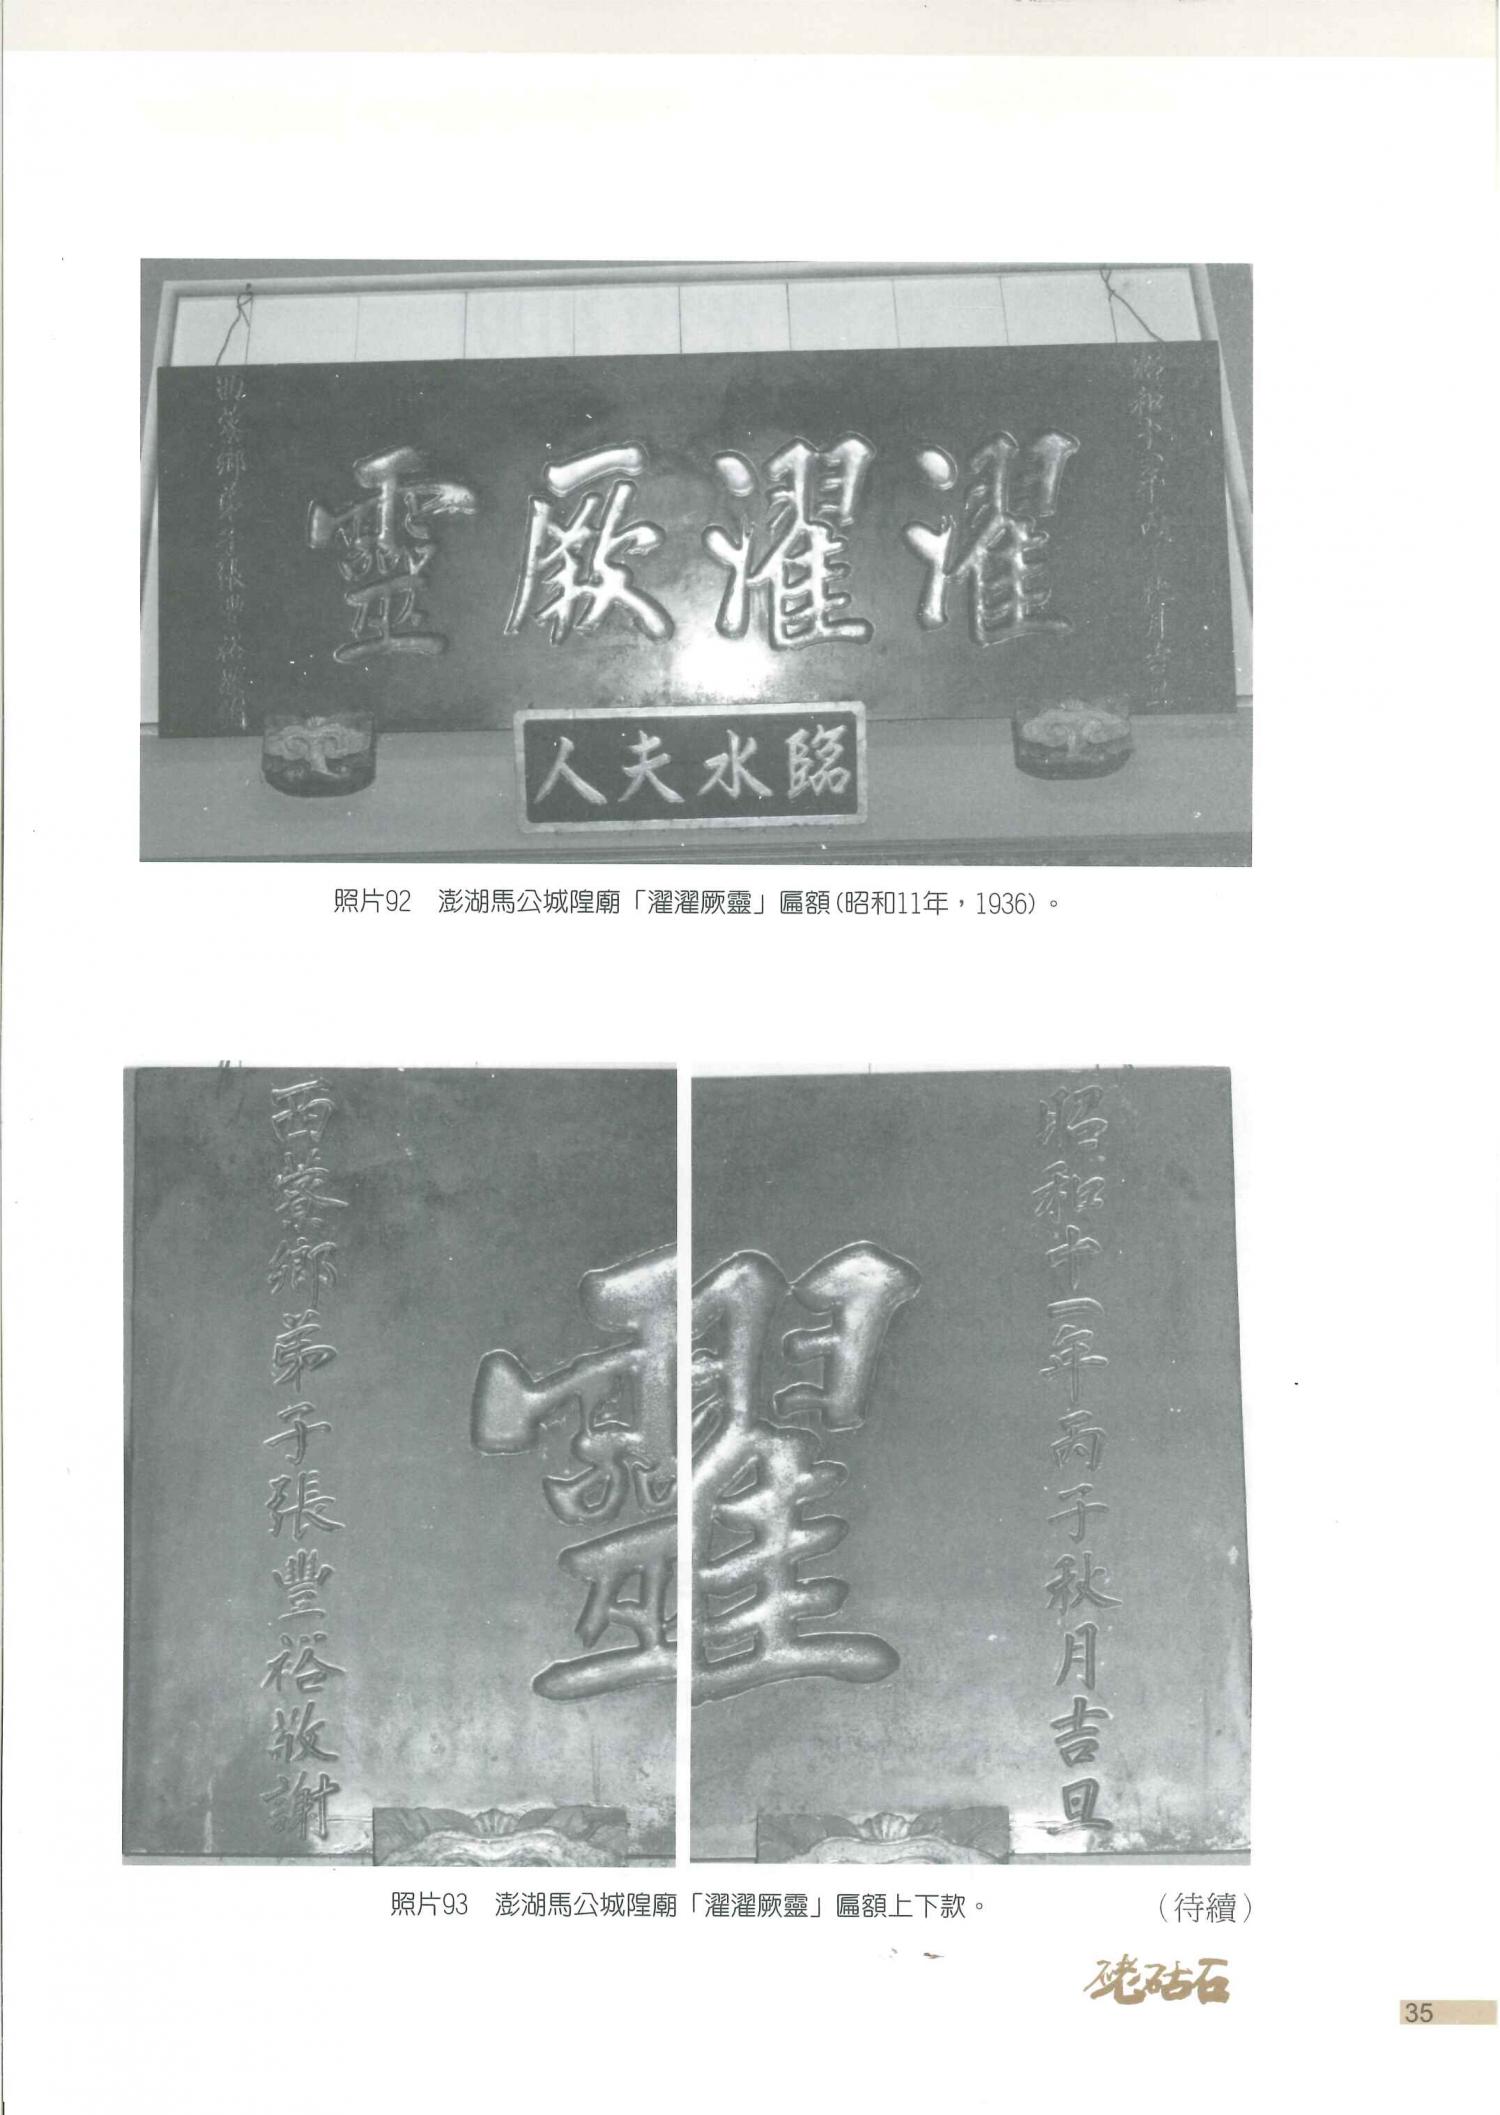 昭和十一年丙子秋月吉旦
濯濯厥靈
西藔鄉弟子張豐裕敬謝
臨水夫人
照片92 澎湖馬公城隍廟「濯濯厥靈」匾額(昭和11年，1936)。
西藔鄉弟子張豐裕敬謝
昭和十一年丙子秋月吉旦
照片93 澎湖馬公城隍廟「濯濯厥靈」匾額上下款。
（待續）
硓𥑮石
35